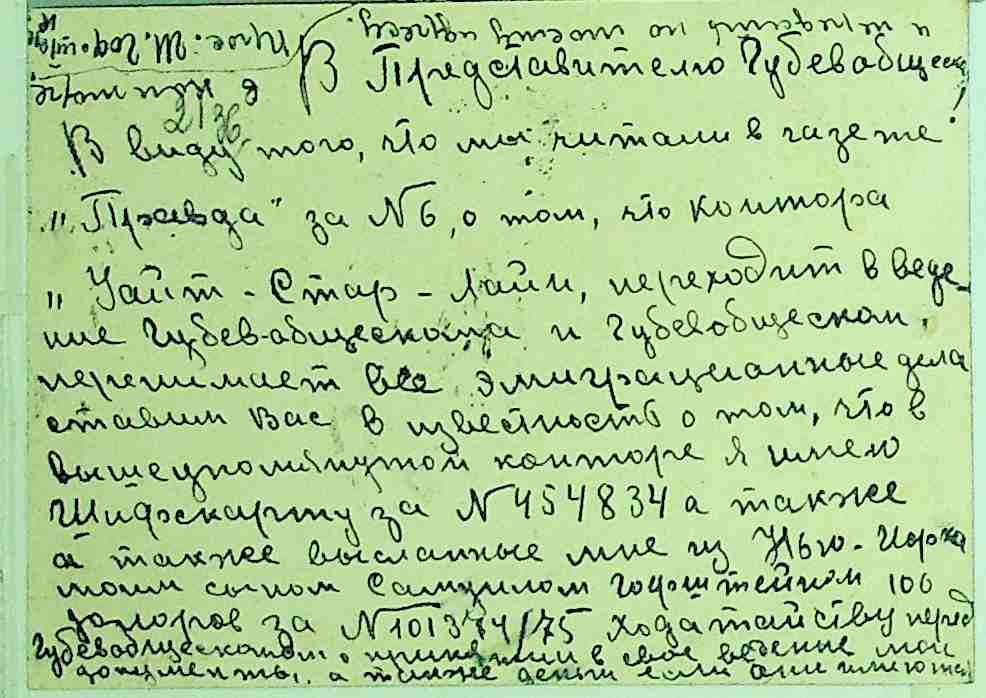 В Представителю Губевобщеск.
2/36
В виду того, что мы читали в газете
„Правда" за N6, о том, что контора
„Уайт-Стар-Лайн, переходит в веде-
ние Губев-общескома и Губевобщеском,
перенимает все эмиграционные дела
ставим Вас в известность о том, что в
вышеупомянутой конторе я имею
Шифскарту за N 454834 а также
а также высланные мне из Нью-Иорка
моим сыном Самуилом Гофштейном 100
долоров за N101374/75 ходатайству перед
Губевобщескомом о принятии в свое ведение мои
документы, а также деньги если они имеются